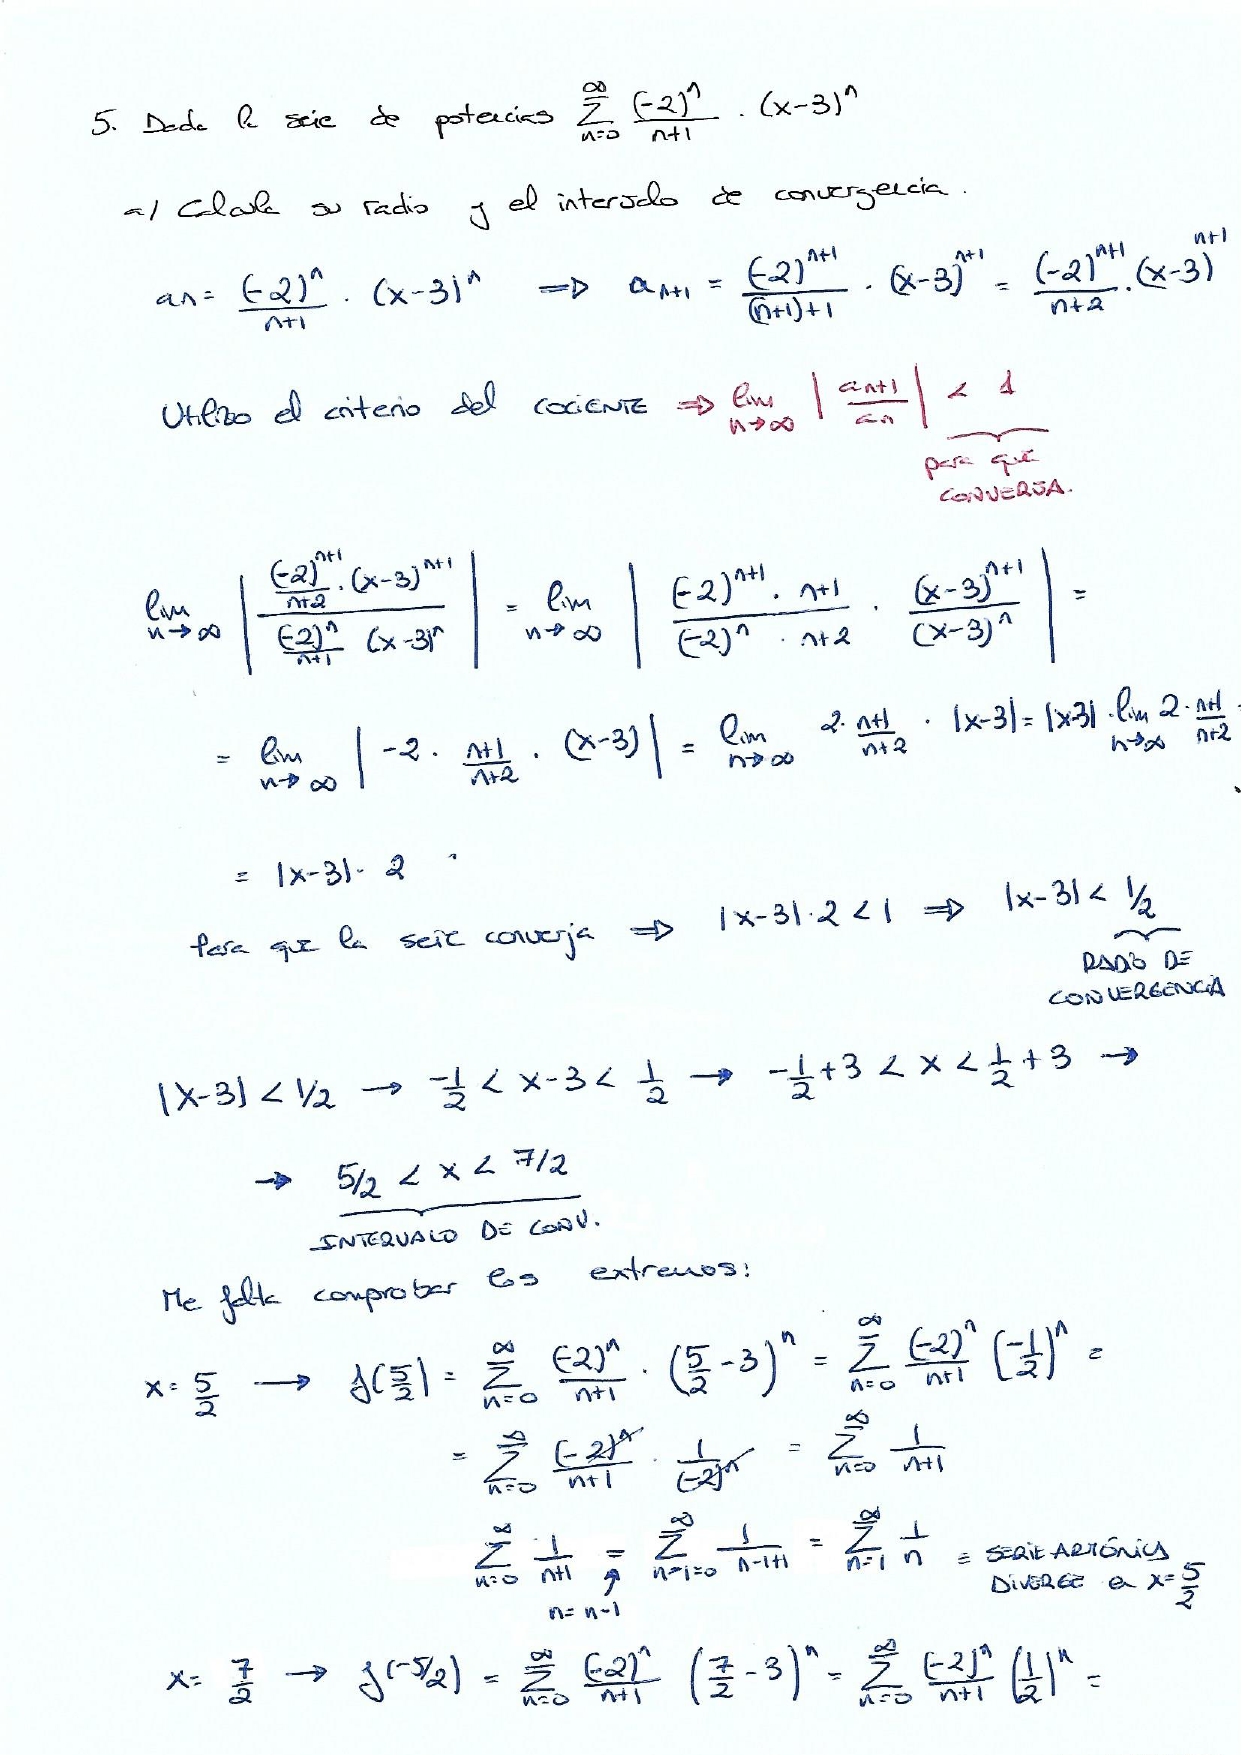 5. Dada la serie de potencias ∑_{n=0}^{∞} (-2)^n/(n+1) · (x-3)^n
a) Calcula su radio y el intervalo de convergencia.
an = (-2)^n/(n+1) · (x-3)^n ⇒ a_{n+1} = (-2)^{n+1}/((n+1)+1) · (x-3)^{n+1} = (-2)^{n+1}/(n+2) · (x-3)^{n+1}
Utilizo el criterio del COCIENTE ⇒ lim_{n→∞} |a_{n+1}/an| < 1
para que
CONVERJA.
lim_{n→∞} | ((-2)^{n+1}/(n+2) · (x-3)^{n+1}) / ((-2)^n/(n+1) (x-3)^n) | = lim_{n→∞} | ((-2)^{n+1} · n+1)/((-2)^n · n+2) · (x-3)^{n+1}/(x-3)^n | =
= lim_{n→∞} | -2 · (n+1)/(n+2) · (x-3) | = lim_{n→∞} 2 · (n+1)/(n+2) · |x-3| = |x-3| · lim_{n→∞} 2 · (n+1)/(n+2)
= |x-3| · 2
Para que la serie converja ⇒ |x-3| · 2 < 1 ⇒ |x-3| < 1/2
RADIO DE
CONVERGENCIA
|x-3| < 1/2 → -1/2 < x-3 < 1/2 → -1/2 + 3 < x < 1/2 + 3 →
→ 5/2 < x < 7/2
INTERVALO DE CONV.
Me falta comprobar los extremos:
x = 5/2 → f(5/2) = ∑_{n=0}^{∞} (-2)^n/(n+1) · (5/2 - 3)^n = ∑_{n=0}^{∞} (-2)^n/(n+1) (-1/2)^n =
= ∑_{n=0}^{∞} (-2)^n/(n+1) · 1/(-2)^n = ∑_{n=0}^{∞} 1/(n+1)
∑_{n=0}^{∞} 1/(n+1) = ∑_{n-1=0}^{∞} 1/(n-1+1) = ∑_{n=1}^{∞} 1/n = SERIE ARMÓNICA
n = n-1
DIVERGE en x = 5/2
x = 7/2 → f(-5/2) = ∑_{n=0}^{∞} (-2)^n/(n+1) (7/2 - 3)^n = ∑_{n=0}^{∞} (-2)^n/(n+1) (1/2)^n =